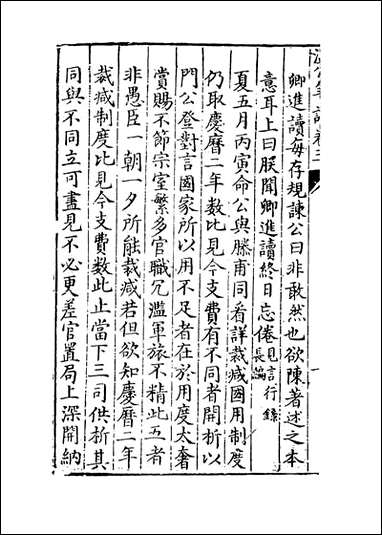 卿進讀毎存規諫公曰非敢然也欲陳著述之本
意耳上曰朕聞卿進讀終日忘倦見言行錄長編
夏五月丙寅命公與滕甫同看詳裁减國用制度
仍取慶曆二年數比見今支費有不同者開析以
門公登對言國家所以用不足者在於用度太奢
賞賜不節宗室繁多官職冗濫軍旅不精此五者
非愚臣一朝一夕所能裁减若但欲知慶曆二年
裁减制度比見今支費數此止當下三司供析其
同與不同立可盡見不必更差官置局上深開納